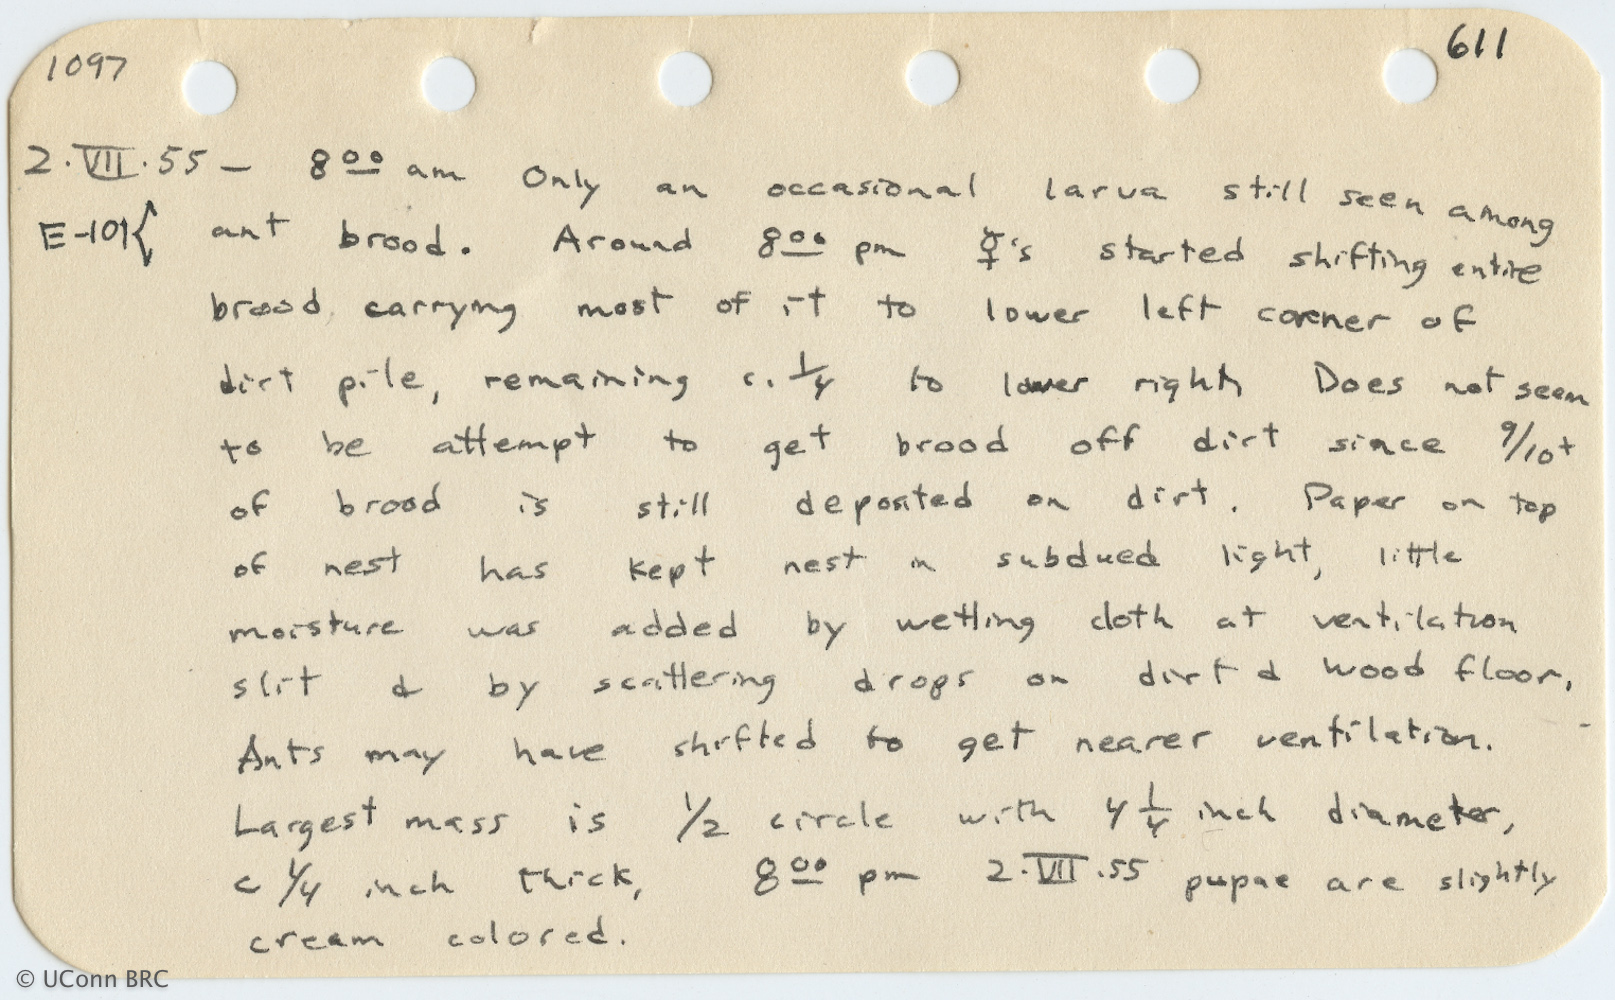 1097
611
2.VII.55 — 8 00 am Only an occasional larva still seen among
E-101{ ant brood. Around 8 00 pm ☿'s started shifting entire
brood, carrying most of it to lower left corner of
dirt pile, remaining c. 1/4 to lower right, Does not seem
to be attempt to get brood off dirt since 9/10+
of brood is still deposited on dirt. Paper on top
of nest has kept nest in subdued light, little
moisture was added by wetting cloth at ventilation
slit & by scattering drops on dirt & wood floor,
Ants may have shifted to get nearer ventilation.
Largest mass is 1/2 circle with 4 1/4 inch diameter,
c 1/4 inch thick, 8 00 pm 2.VII.55 pupae are slightly
cream colored.
© UConn BRC